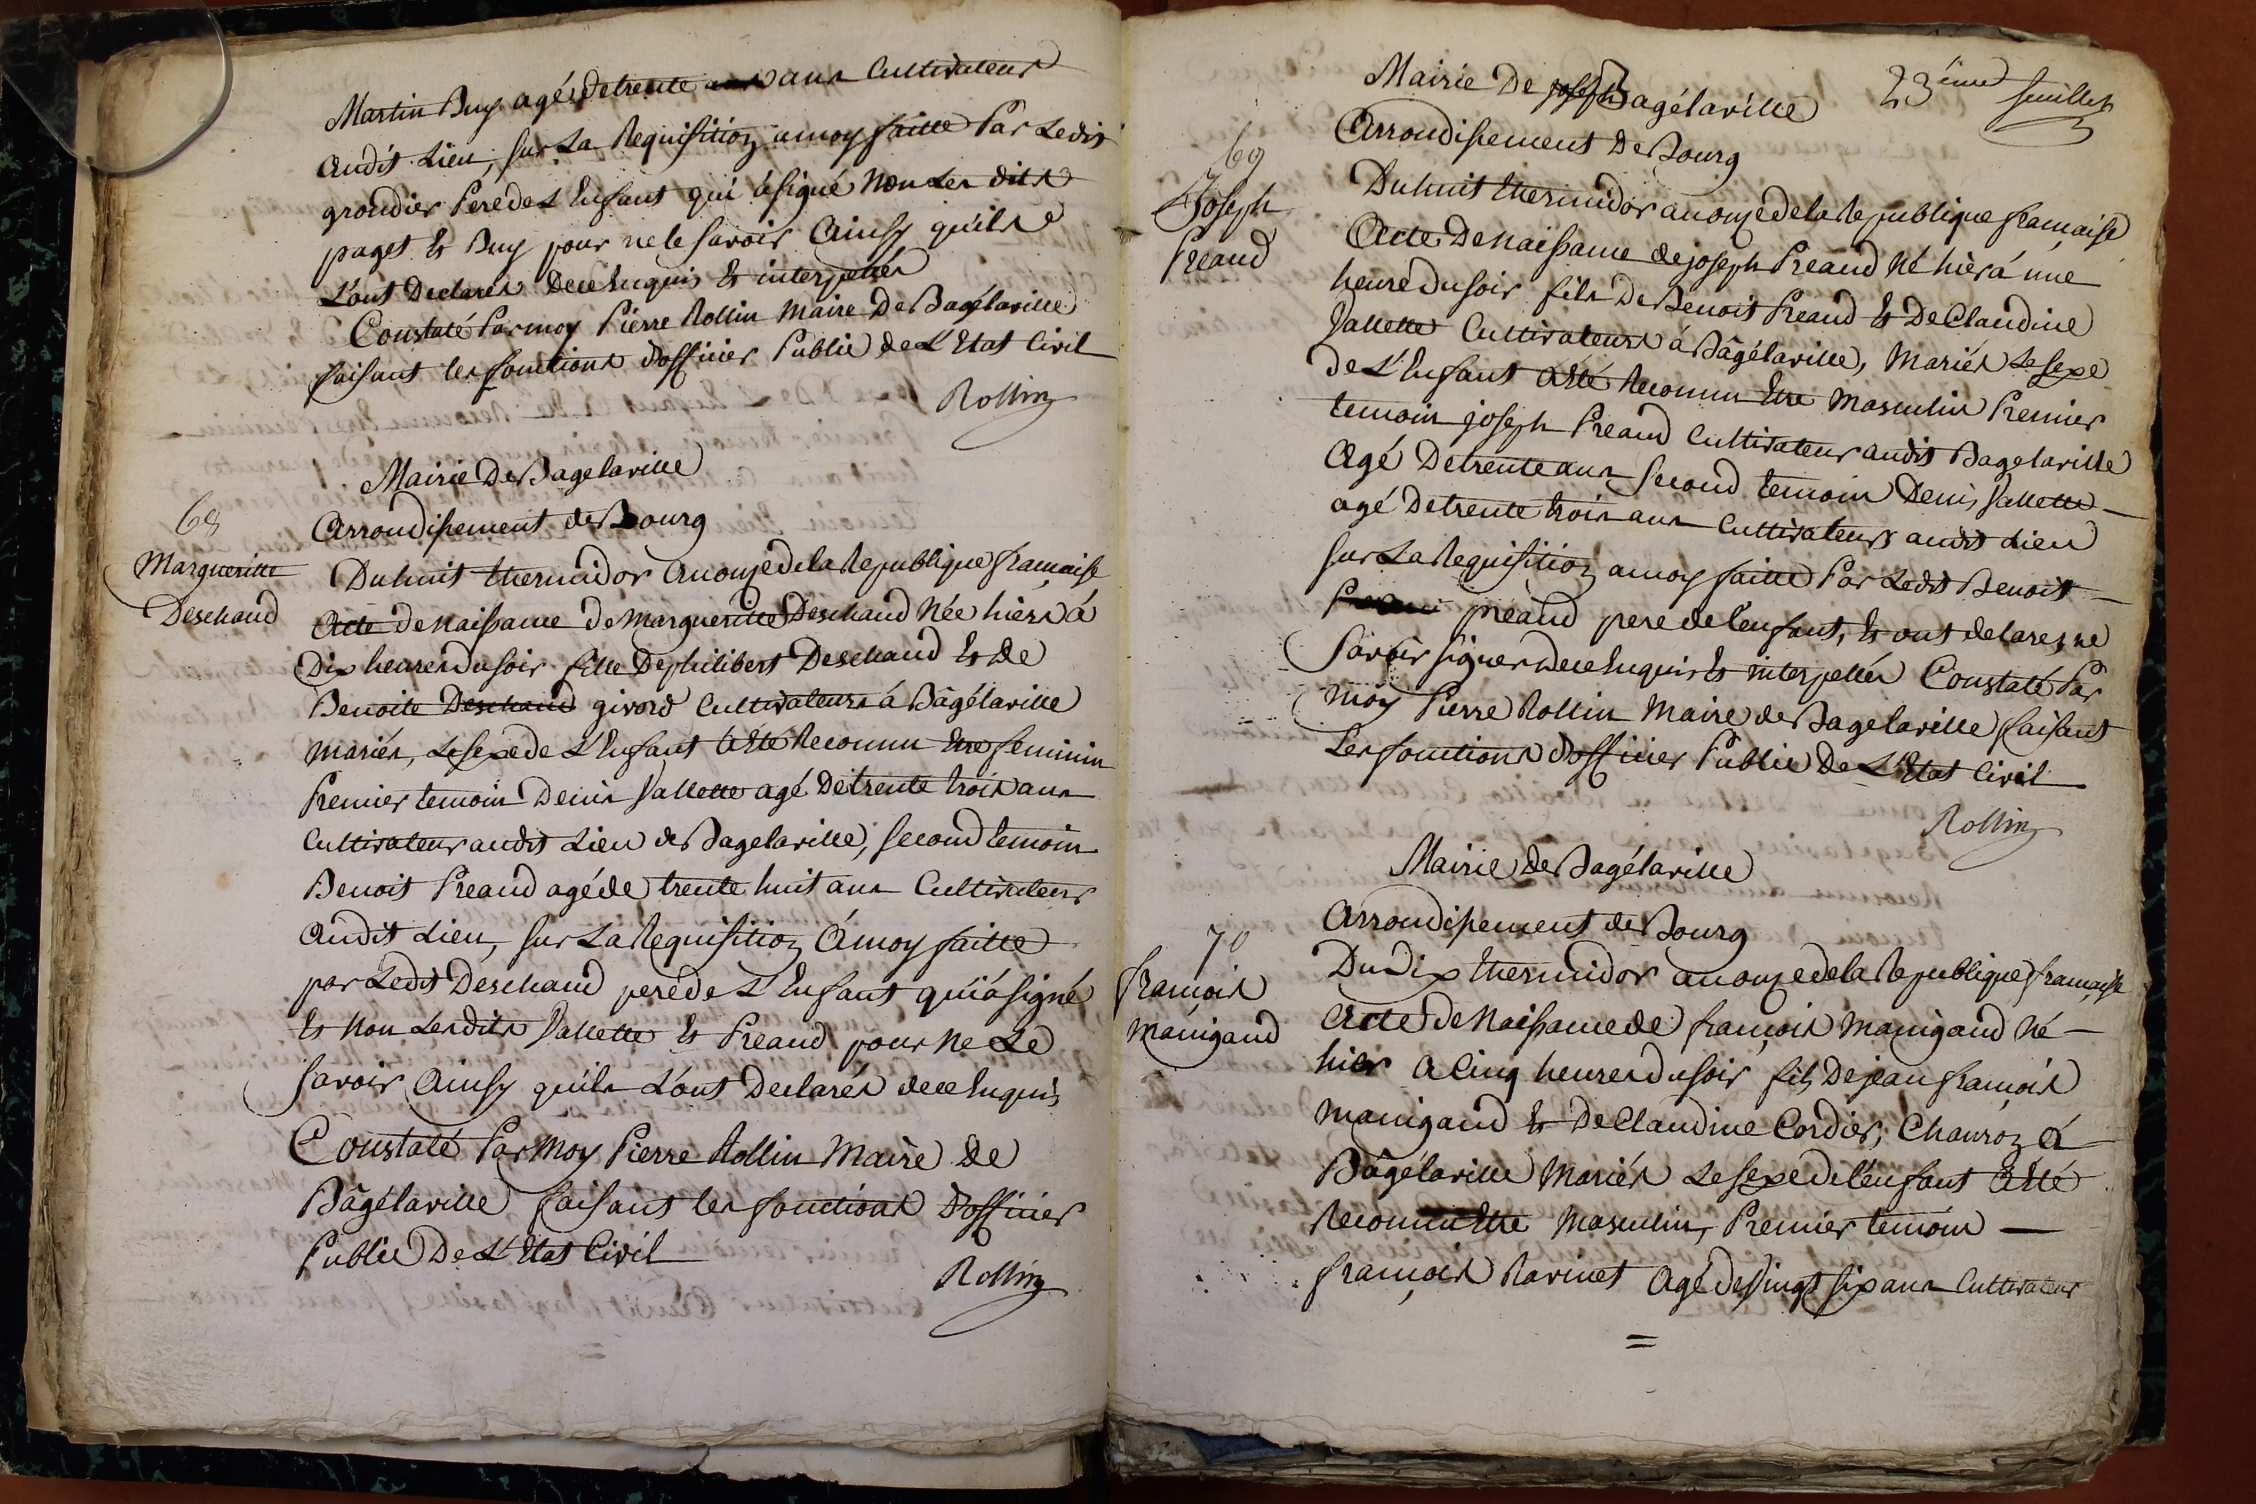 Martin Buy agé de trente ans Cultivateur
audit Lieu, sur La Requisition a moy faitte Par Ledit
grondier Pere de L'Enfant qui à signé Non Les dits
paget Et Buy pour ne le savoir Ainsy qu'ils
L'ont Declarés de ce Enquis Et interpellés
Constaté Par moy Pierre Rollin Maire De Bagélaville
faisant les fonctions d'officier Public de L'Etat Civil
Rollin
Mairie De Bagelaville
68
Arrondissement de Bourg
Margueritte
Deschaud
Du huit thermidor an onze de la Republique francaise
Acte de Naissance de Margueritte Deschaud Née hier à
Dix heures du soir fille De philibert Deschaud Et De
Benoite Deschaud girord Cultivateurs à Bâgélaville
mariés, Le sexe de L'Enfant à Eté Reconnu Etre feminin
Premier temoin Denis Vallette agé De trente trois ans
Cultivateur audit Lieu de Bagelaville, second temoin
Benoit Preaud agé de trente huit ans Cultivateur
audit Lieu, sur La Requisition à moy faitte
par Ledit Deschaud pere de L'Enfant qui à signé
Et Non Lesdits Vallette Et Preaud pour Ne Le
savoir Ainsy qu'ils L'ont Declarés de ce Enquis
Constaté Par moy Pierre Rollin Maire De
Bâgélaville faisant les fonctions D'officier
Public De L'Etat Civil
Rollin
23ième feuillet
Mairie De joseph Bagélaville
Arrondissement De Bourg
69
Joseph
Preaud
Du huit thermidor an onze de la Republique francaise
Acte De Naissance de joseph Preaud Né hier à une
heure du soir fils De Benoit Preaud Et De Claudine
Vallette Cultivateurs à Bâgélaville, Mariés Le sexe
de L'Enfant à Eté Reconnu Etre Masculin Premier
temoin joseph Preaud Cultivateur audit Bagelaville
Agé De trente ans second temoin Denis Vallette
agé De trente trois ans Cultivateurs audit Lieu
sur La Requisition a moy faitte Par Ledit Benoit
preaud pere de l'enfant, Et ont declarez ne
savoir signer de ce Enquis Et interpellés Constaté Par
moy Pierre Rollin Maire de Bagelaville faisant
Les fonctions d'officier Public De L'Etat Civil
Rollin
Mairie de Bagélaville
Arrondissement de Bourg
70
francois
Manigaud
Du Dix thermidor an onze de la Republique francaise
Acte de Naissance de françois Manigaud Né
hier A Cinq heures du soir fils De jean françois
Manigaud Et De Claudine Cordier, Charron à
Bâgélaville Mariés Le sexe de l'enfant à Eté
Reconnu Etre Masculin, Premier temoin
françois Ravinet Agé de Vingt six ans Cultivateur